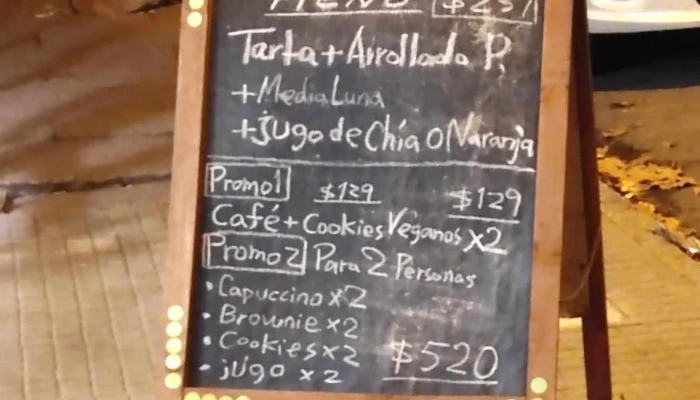 MENÚ $259
Tarta+Arrollado P.
+MediaLuna
+jUgo de Chía O Naranja
Promo1 $129 $129
Café+Cookies Veganos x2
Promo2 Para 2 Personas
• Capuccino x2
• Brownie x2
• Cookies x2 $520
• jUgo x2